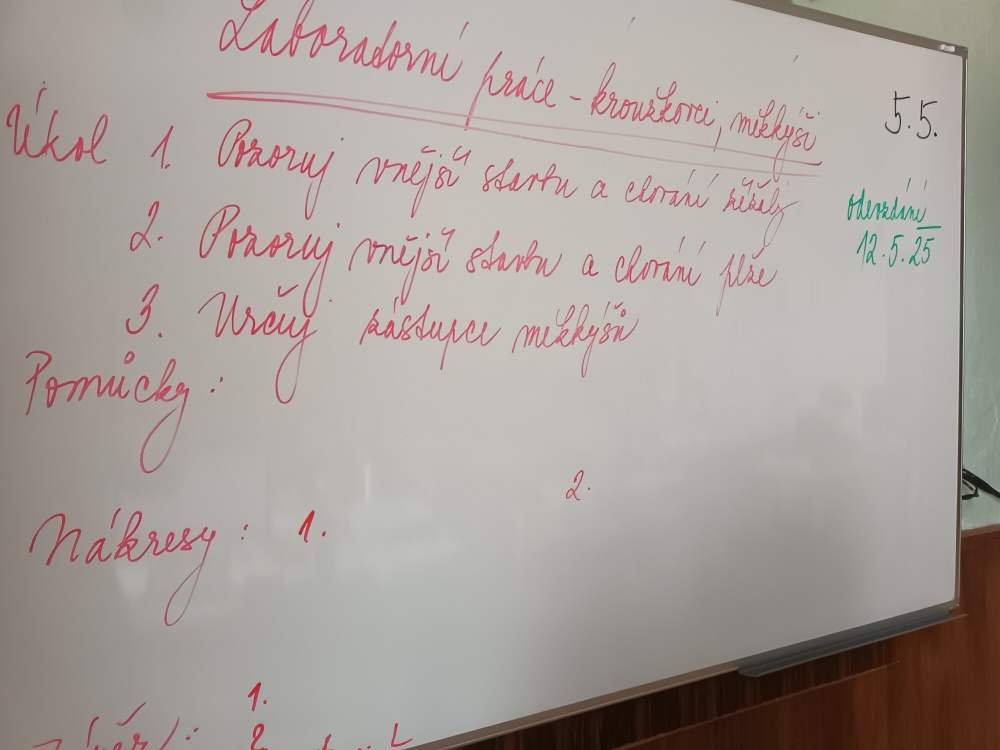 Laboratorní práce - kroužkovci, měkkýši
5.5.
Úkol 1. Pozoruj vnější stavbu a chování žížaly
odevzdání
12.5.25
2. Pozoruj vnější stavbu a chování plže
3. Urči zástupce měkkýšů
Pomůcky:
2.
Nákresy: 1.
1.
Závěr: 2.